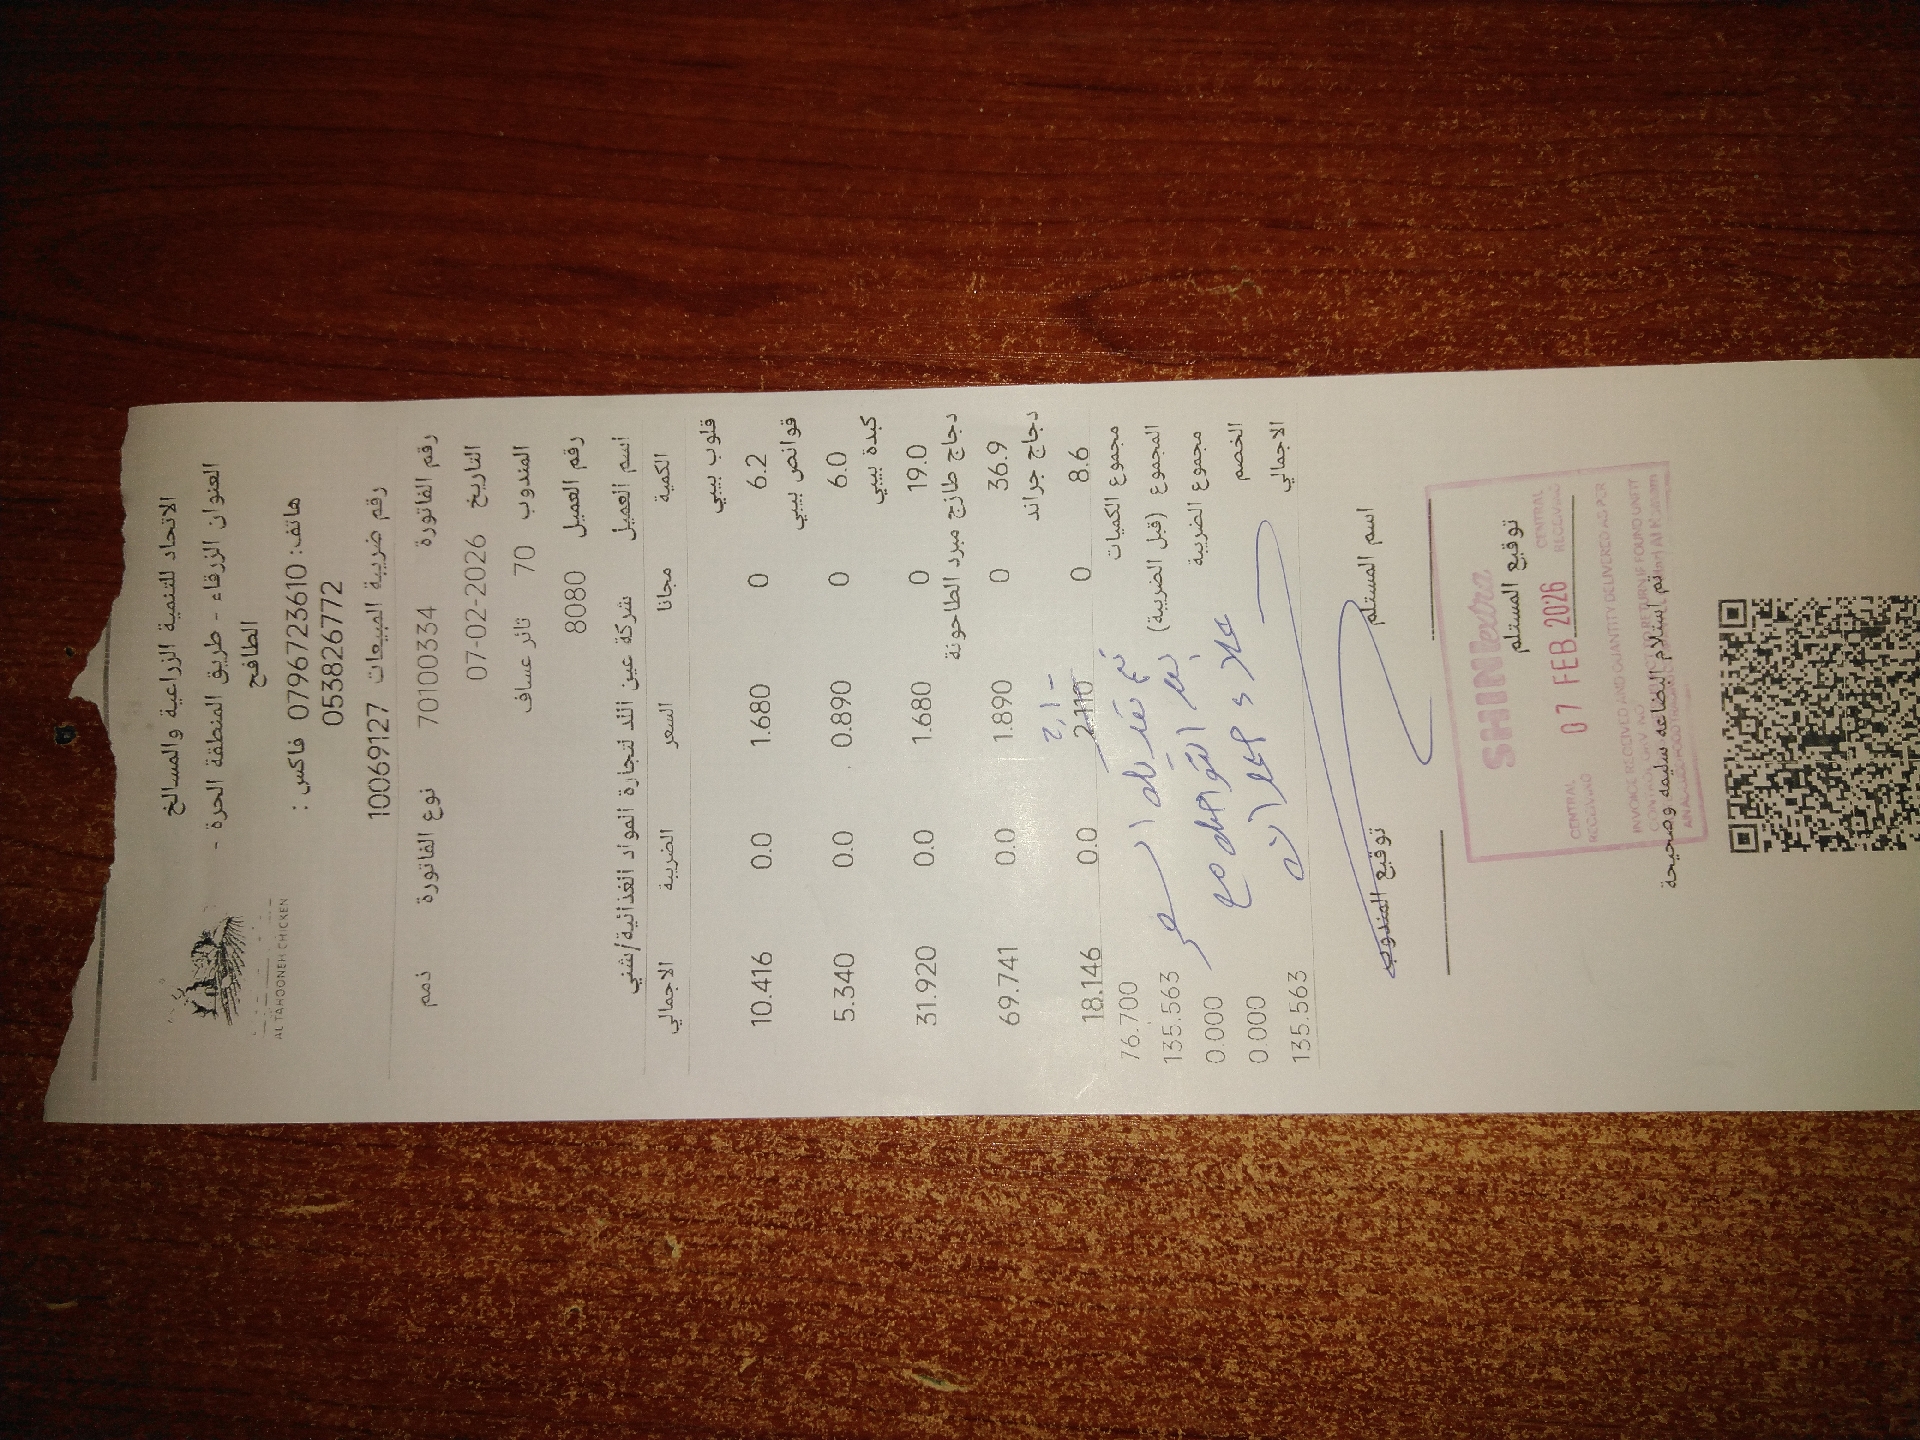 AL TAHOONEH CHICKEN
الاتحاد للتنمية الزراعية والمسالخ
العنوان الزرقاء - طريق المنطقة الحرة -
الطافح
هاتف: 0796723610 فاكس :
053826772
رقم ضريبة المبيعات 10069127
رقم الفاتورة 70100334 نوع الفاتورة ذمم
التاريخ 07-02-2026
المندوب 70 ثائر عساف
رقم العميل 8080
اسم العميل شركة عين الند لتجارة المواد الغذائية/شني
الكمية مجانا السعر الضريبة الاجمالي
قلوب بيبي
6.2 0 1.680 0.0 10.416
قوانص بيبي
6.0 0 0.890 0.0 5.340
كبدة بيبي
19.0 0 1.680 0.0 31.920
دجاج طازج مبرد الطاحونة
36.9 0 1.890 0.0 69.741
دجاج جراند
2,1-
8.6 0 2.110 0.0 18.146
مجموع الكميات 76.700
المجموع (قبل الضريبة) 135.563
مجموع الضريبة 0.000
الخصم 0.000
الاجمالي 135.563
تم تعديل السعر
بعد التواصل مع
اسم المستلم توقيع المندوب
SHINI extra
توقيع المستلم
CENTRAL RECEIVING 07 FEB 2026 CENTRAL RECEIVING
INVOICE RECEIVED AND QUANTITY DELIVERED AS PER
تم استلام البضاعه سليمه وصحيحة